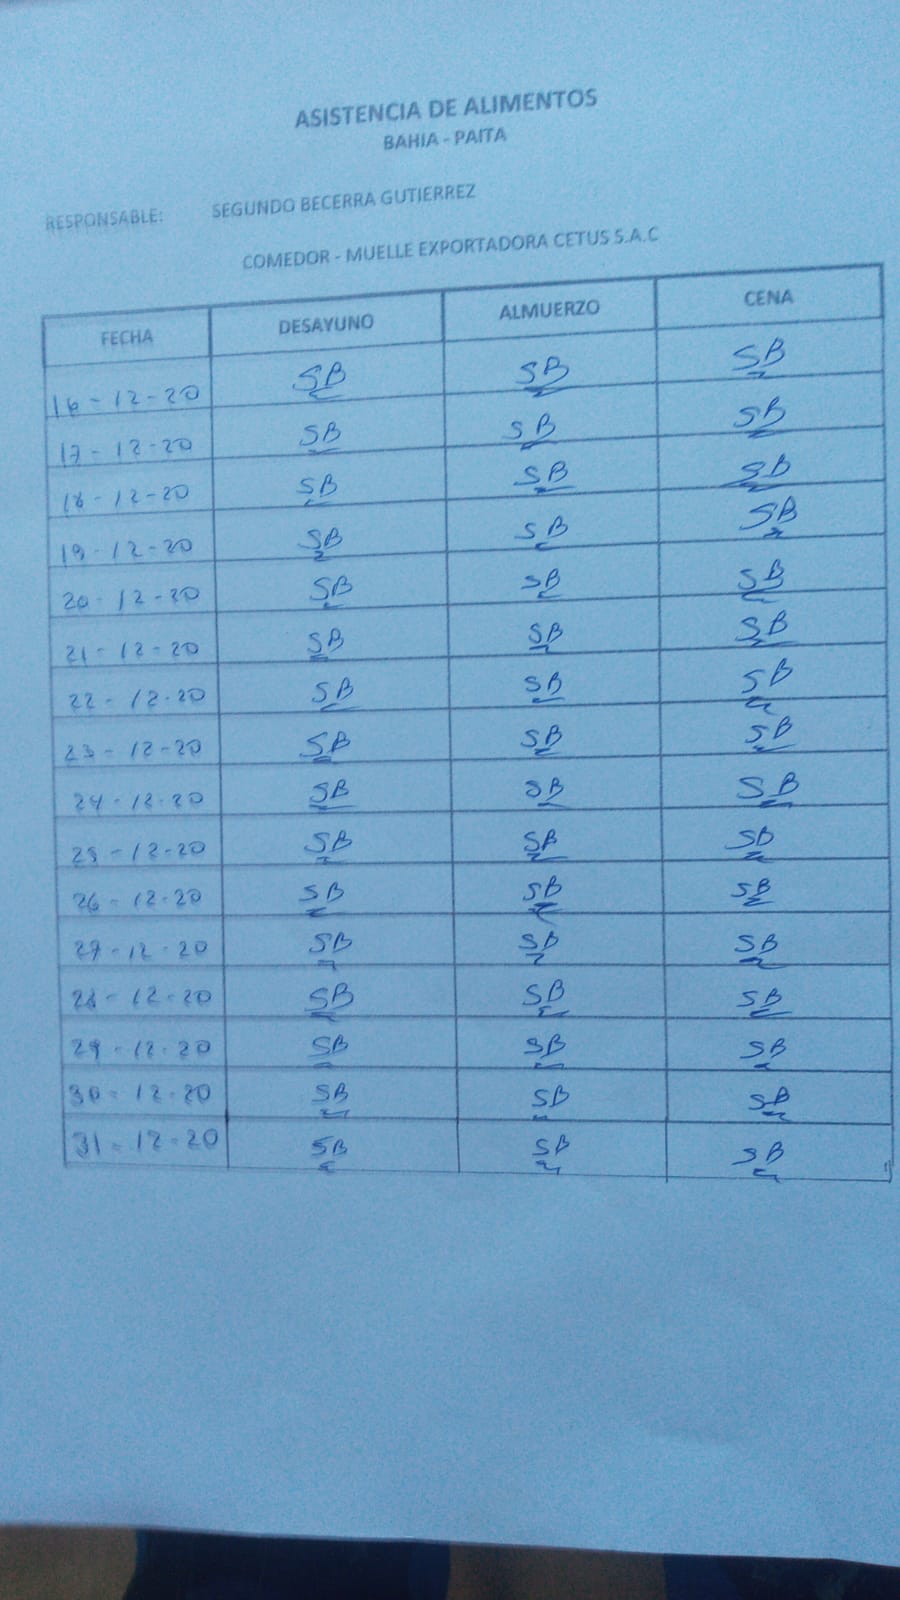 ASISTENCIA DE ALIMENTOS
BAHIA - PAITA
RESPONSABLE: SEGUNDO BECERRA GUTIERREZ
COMEDOR - MUELLE EXPORTADORA CETUS S.A.C
FECHA DESAYUNO ALMUERZO CENA
16-12-20 SB SB SB
17-12-20 SB SB SB
18-12-20 SB SB SB
19-12-20 SB SB SB
20-12-20 SB SB SB
21-12-20 SB SB SB
22-12-20 SB SB SB
23-12-20 SB SB SB
24-12-20 SB SB SB
25-12-20 SB SB SB
26-12-20 SB SB SB
27-12-20 SB SB SB
28-12-20 SB SB SB
29-12-20 SB SB SB
30-12-20 SB SB SB
31-12-20 SB SB SB